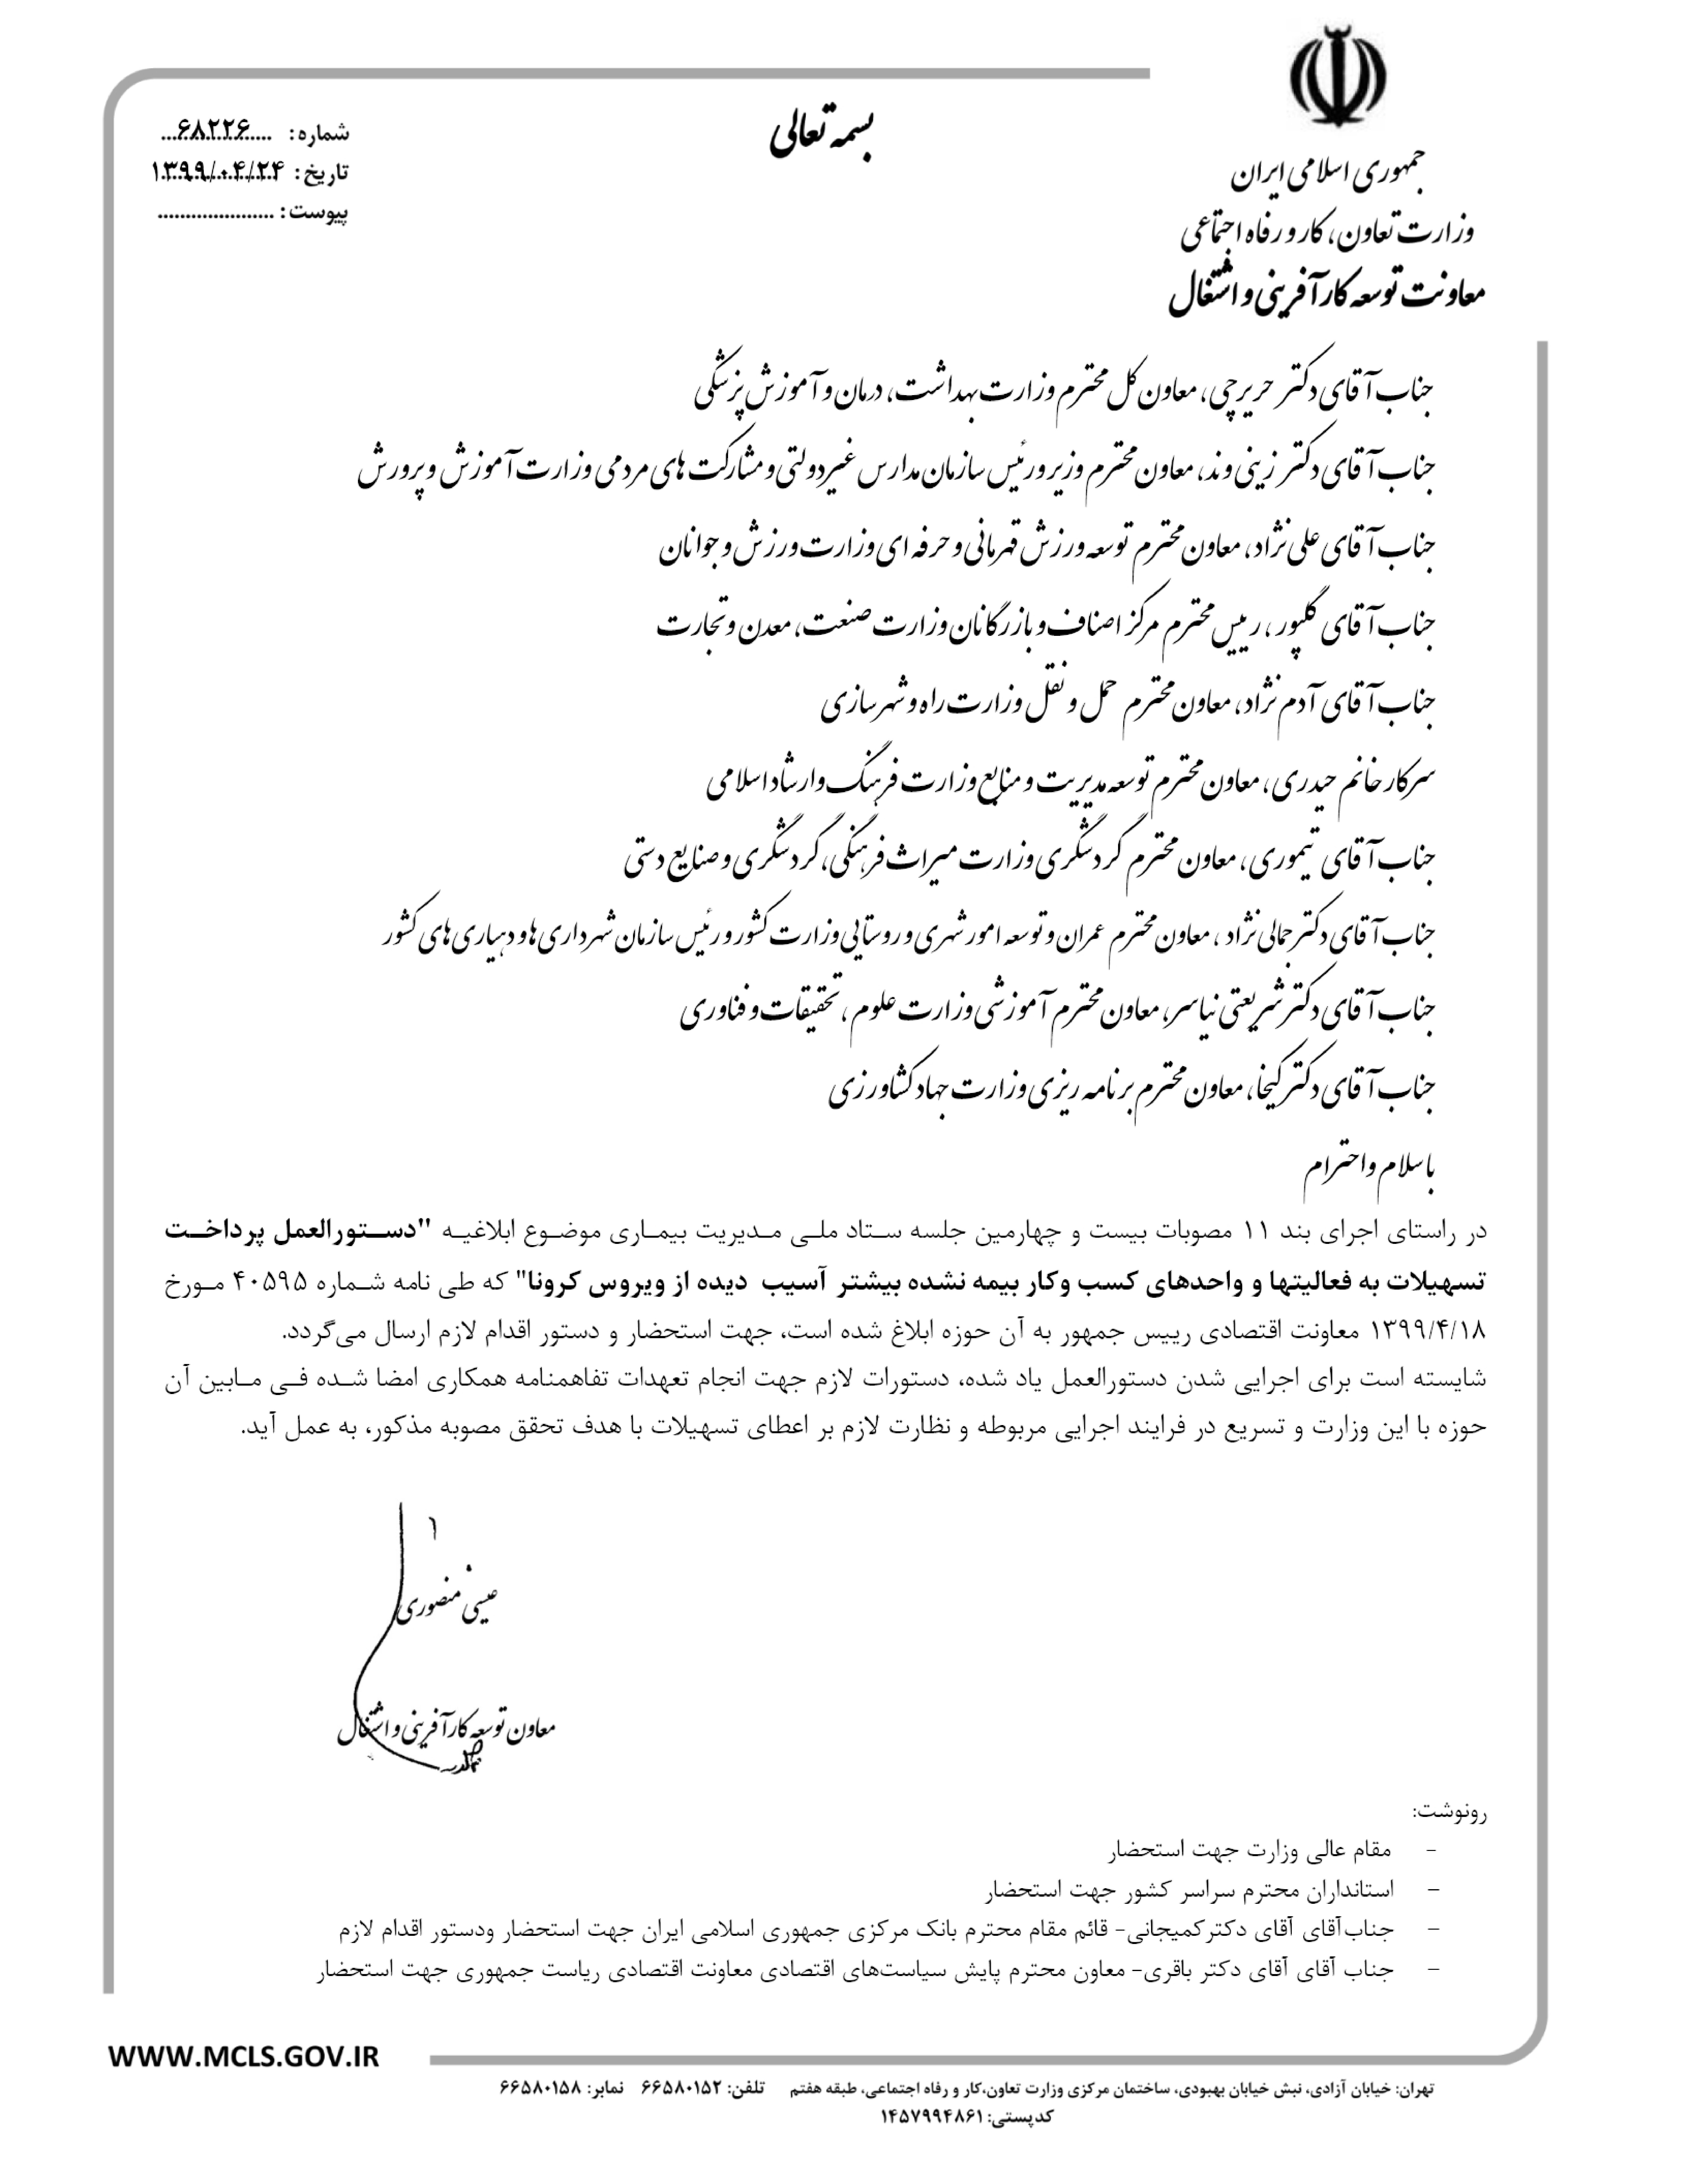 بسمه تعالی
جمهوری اسلامی ایران
وزارت تعاون، کار و رفاه اجتماعی
معاونت توسعه کارآفرینی و اشتغال
شماره: ....۶۸۲۲۶....
تاریخ: ۱۳۹۹/۰۴/۲۴
پیوست: .....................
جناب آقای دکتر حریرچی، معاون کل محترم وزارت بهداشت، درمان و آموزش پزشکی
جناب آقای دکتر زینی وند، معاون محترم وزیر و رئیس سازمان مدارس غیردولتی و مشارکت های مردمی وزارت آموزش و پرورش
جناب آقای علی نژاد، معاون محترم توسعه ورزش قهرمانی و حرفه ای وزارت ورزش و جوانان
جناب آقای گلپور، رییس محترم مرکز اصناف و بازرگانان وزارت صنعت، معدن و تجارت
جناب آقای آدم نژاد، معاون محترم حمل و نقل وزارت راه و شهرسازی
سرکار خانم حیدری، معاون محترم توسعه مدیریت و منابع وزارت فرهنگ و ارشاد اسلامی
جناب آقای تیموری، معاون محترم گردشگری وزارت میراث فرهنگی، گردشگری و صنایع دستی
جناب آقای دکتر جمالی نژاد، معاون محترم عمران و توسعه امور شهری و روستایی وزارت کشور و رئیس سازمان شهرداری ها و دهیاری های کشور
جناب آقای دکتر شریعتی نیاسر، معاون محترم آموزشی وزارت علوم، تحقیقات و فناوری
جناب آقای دکتر کیخا، معاون محترم برنامه ریزی وزارت جهاد کشاورزی
با سلام و احترام
در راستای اجرای بند ۱۱ مصوبات بیست و چهارمین جلسه ستاد ملی مدیریت بیماری موضوع ابلاغیه "دستورالعمل پرداخت
تسهیلات به فعالیتها و واحدهای کسب وکار بیمه نشده بیشتر آسیب دیده از ویروس کرونا" که طی نامه شماره ۴۰۵۹۵ مورخ
۱۳۹۹/۴/۱۸ معاونت اقتصادی رییس جمهور به آن حوزه ابلاغ شده است، جهت استحضار و دستور اقدام لازم ارسال می‌گردد.
شایسته است برای اجرایی شدن دستورالعمل یاد شده، دستورات لازم جهت انجام تعهدات تفاهمنامه همکاری امضا شده فی مابین آن
حوزه با این وزارت و تسریع در فرایند اجرایی مربوطه و نظارت لازم بر اعطای تسهیلات با هدف تحقق مصوبه مذکور، به عمل آید.
عیسی منصوری
معاون توسعه کارآفرینی و اشتغال
رونوشت:
- مقام عالی وزارت جهت استحضار
- استانداران محترم سراسر کشور جهت استحضار
- جناب‌آقای آقای دکترکمیجانی- قائم مقام محترم بانک مرکزی جمهوری اسلامی ایران جهت استحضار ودستور اقدام لازم
- جناب آقای آقای دکتر باقری- معاون محترم پایش سیاست‌های اقتصادی معاونت اقتصادی ریاست جمهوری جهت استحضار
WWW.MCLS.GOV.IR
تهران: خیابان آزادی، نبش خیابان بهبودی، ساختمان مرکزی وزارت تعاون،کار و رفاه اجتماعی، طبقه هفتم تلفن: ۶۶۵۸۰۱۵۲ نمابر: ۶۶۵۸۰۱۵۸
کدپستی: ۱۴۵۷۹۹۴۸۶۱